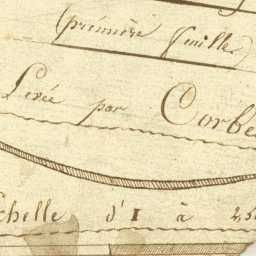 (première feuille)
Levée par Corbe
chelle d'1 à 25